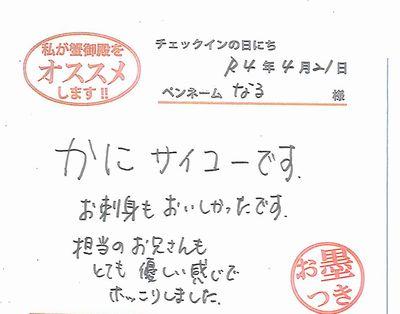 私が蟹御殿を
オススメ
します!!
チェックインの日にち
R4年4月21日
ペンネーム なる 様
かにサイコーです.
お刺身もおいしかったです.
担当のお兄さんも
とても優しい感じで
ホッコリしました.
お墨
つき